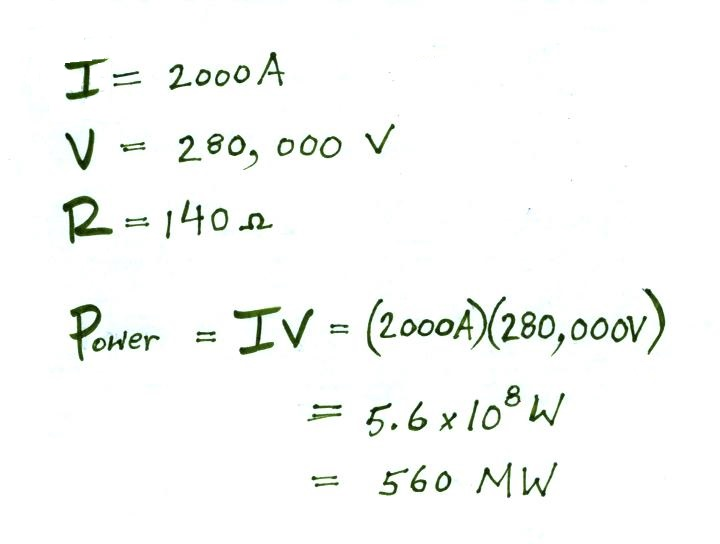 I = 2000A
V = 280,000 V
R = 140 Ω
Power = IV = (2000A)(280,000V)
= 5.6 x 10⁸ W
= 560 MW